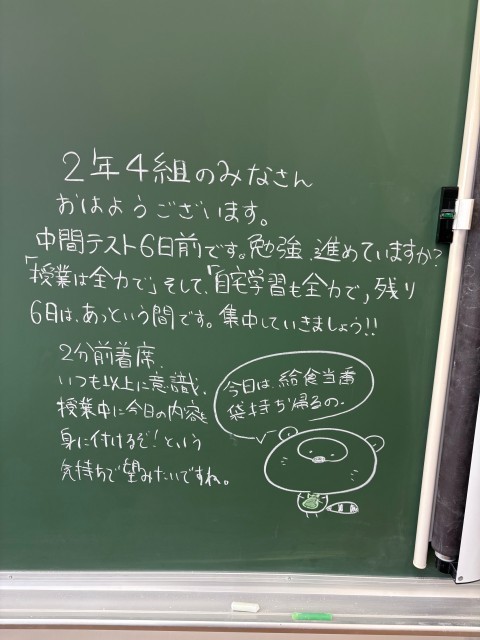 2年4組のみなさん
おはようございます。
中間テスト6日前です。勉強、進めていますか?
「授業は全力で」そして、「自宅学習も全力で」、残り
6日は、あっという間です。集中していきましょう!!
2分前着席、
いつも以上に意識、
授業中に今日の内容を
身に付けるぞ!という
気持ちで望みたいですね。
今日は、給食当番
袋持ち帰るの。